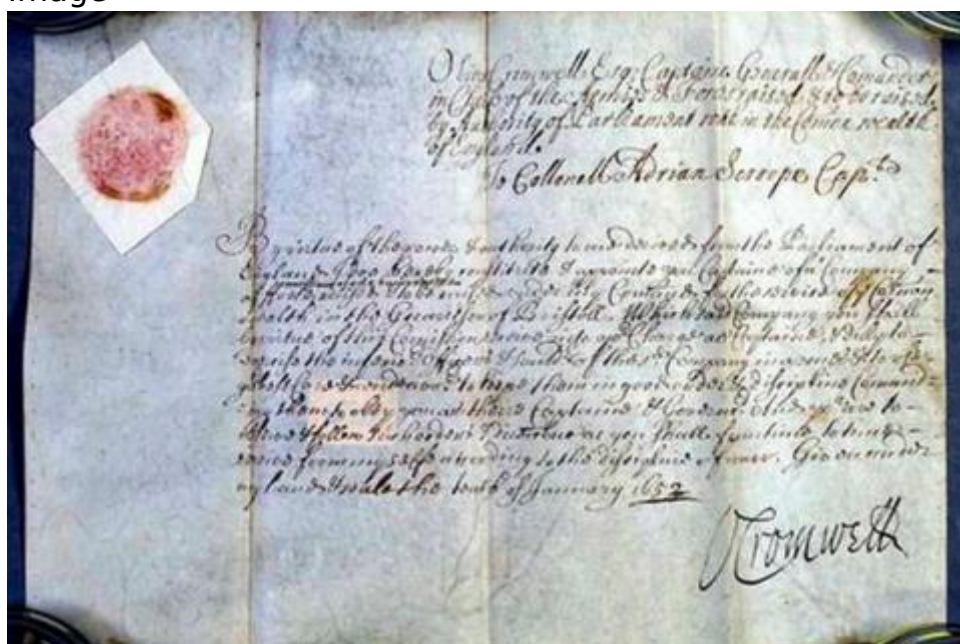 Image
Oliver Cromwell Esqr Captaine Generall & Comander
in Cheife of the Armies & Forces raised & to be raised
by Authority of Parliament within the Comon wealth
of England.
To Collonell Adrian Scroope Capt.
By virtue of the power & authority to mee derived from the Parliament of
England I doe hereby constitute & appointe you Captaine of a Company
of foote raised & to be raised under My Comand for the service of Comon
wealth in the of Bristoll. Which said Company you shall
virtue of this Comission receive into yor Charge as Captaine, & duly
exercise the inferior Officers & Souldrs of the sd Company in armes &
to keepe them in good order & discipline Comand
ing them to obey you as theire Captaine
& follow such orders & directions as you shall from time to time
receive from my selfe according to the discipline of warr. Given under
my hand & seale the tenth of January 1652
O Cromwell